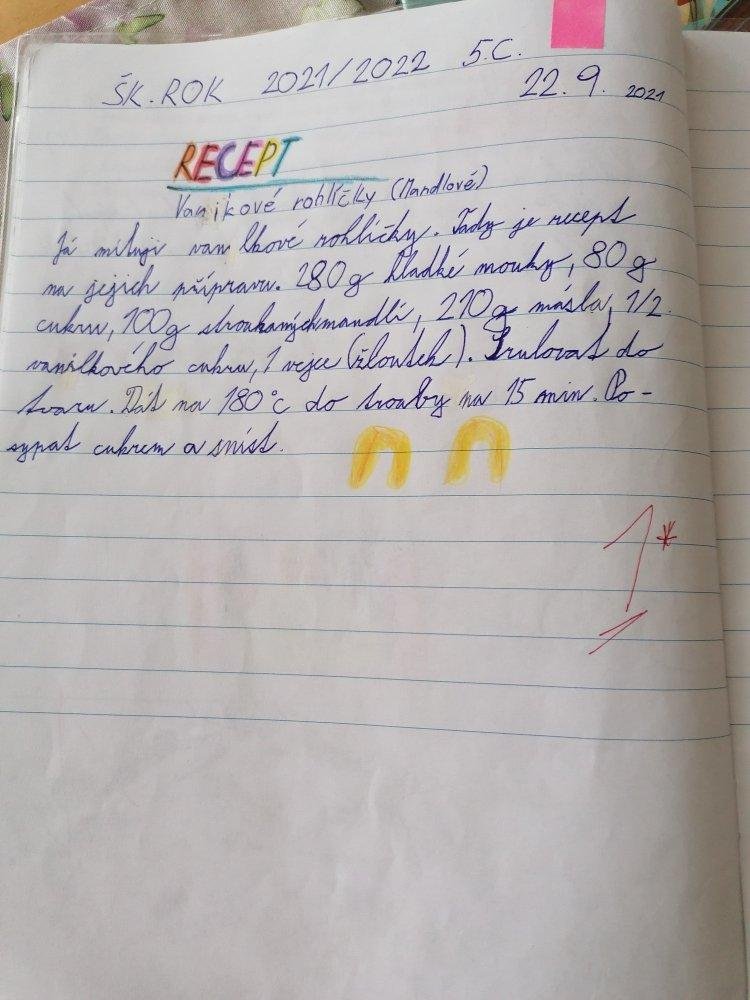 ŠK. ROK 2021/2022 5.C.
22. 9. 2021
RECEPT
Vanikové rohlíčky (Mandlové)
Já miluji vanilkové rohlíčky. Tady je recept
na jejich přípravu. 280g hladké mouky, 80g
cukru, 100g strouhaných mandlí, 210g másla, 1/2
vanilkového cukru, 1 vejce (žloutek). Srulovat do
tvaru. Dát na 180°C do trouby na 15 min. Po-
sypat cukrem a sníst.
1*